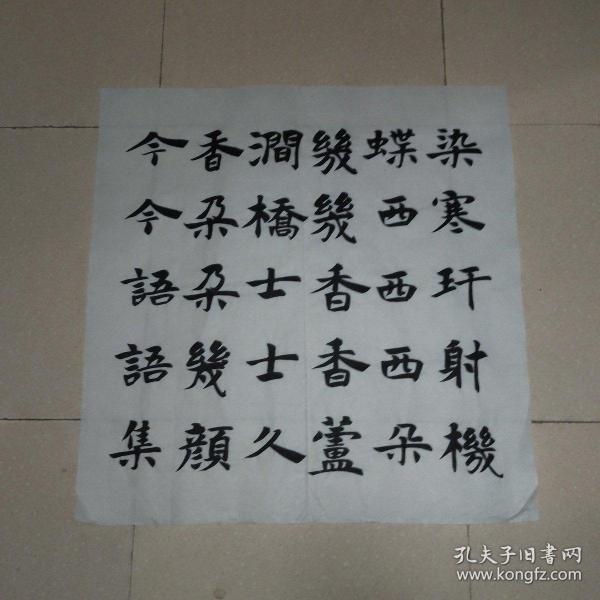 染寒玕射機
蝶西西西朵
幾幾香香蘆
澗橋士士久
香朶朶幾顔
今今語語集
孔夫子旧書网
www.kongfz.com